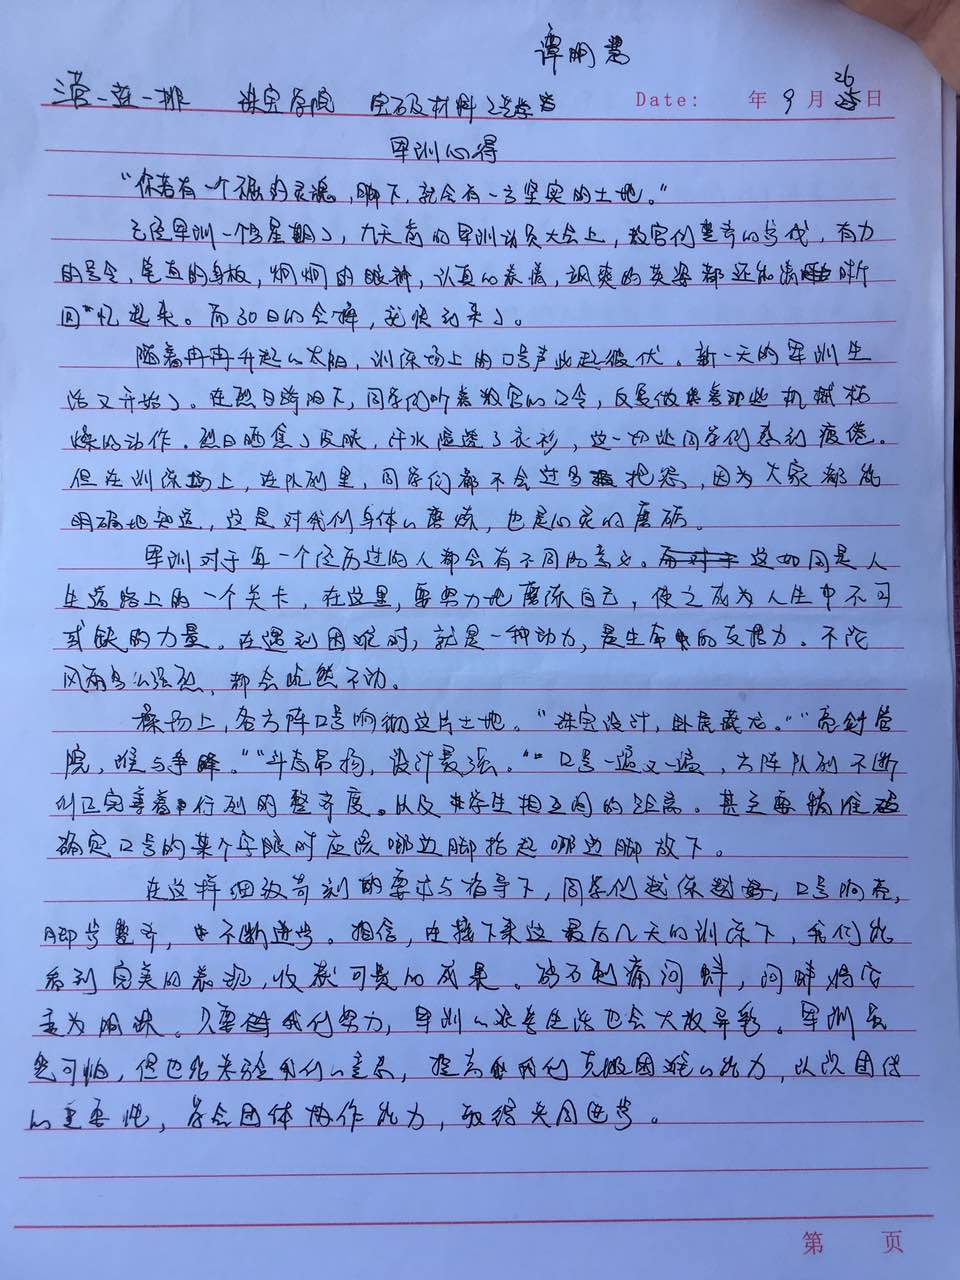 谭明慧
三营一连一排 珠宝学院 宝石及材料工艺学 Date: 年 9 月 26 日
军训心得
“你若有一个不屈的灵魂，脚下，就会有一方坚实的土地。”
已经军训一个多星期了，九天前的军训动员大会上，教官们整齐的步伐，有力
的号令，笔直的身板，炯炯的眼神，认真的表情，飒爽的英姿都还能清晰
回忆起来。而30日的会操，就快到来了。
随着冉冉升起的太阳，训练场上的口号声此起彼伏。新一天的军训生
活又开始了。在烈日骄阳下，同学们听着教官的口令，反复做着那些机械枯
燥的动作。烈日晒焦了皮肤，汗水湿透了衣衫，这一切让同学们感到疲倦。
但在训练场上，在队列里，同学们都不会过多抱怨，因为大家都能
明确地知道，这是对我们身体的磨炼，也是心灵的磨砺。
军训对于每一个经历过的人都会有不同的意义。这如同是人
生道路上的一个关卡，在这里，要努力地磨练自己，使之成为人生中不可
或缺的力量。在遇到困难时，就是一种动力，是生命的支撑力。不论
风雨多么强烈，都会屹然不动。
操场上，各方阵口号响彻这片土地。“珠宝设计，卧虎藏龙。”“亮剑管
院，谁与争锋。”“斗志昂扬，设计最强。”口号一遍又一遍，方阵队列不断
们正完善着行列的整齐度。以及学生相互间的距离。甚至要精准
确定口号的某个字眼时应该哪边脚抬起哪边脚放下。
在这样细致苛刻的要求与指导下，同学们越练越好，口号响亮，
脚步整齐，不断进步。相信，在接下来这最后几天的训练下，我们能
看到完美的表现，收获可贵的成果。砂石刺痛河蚌，河蚌将它
变为明珠。只要我们努力，军训的艰苦生活也会大放异彩。军训虽
然可怕，但也能考验我们的意志，提高我们克服困难的能力，认识团体
的重要性，学会团体协作能力，取得共同进步。
第 页